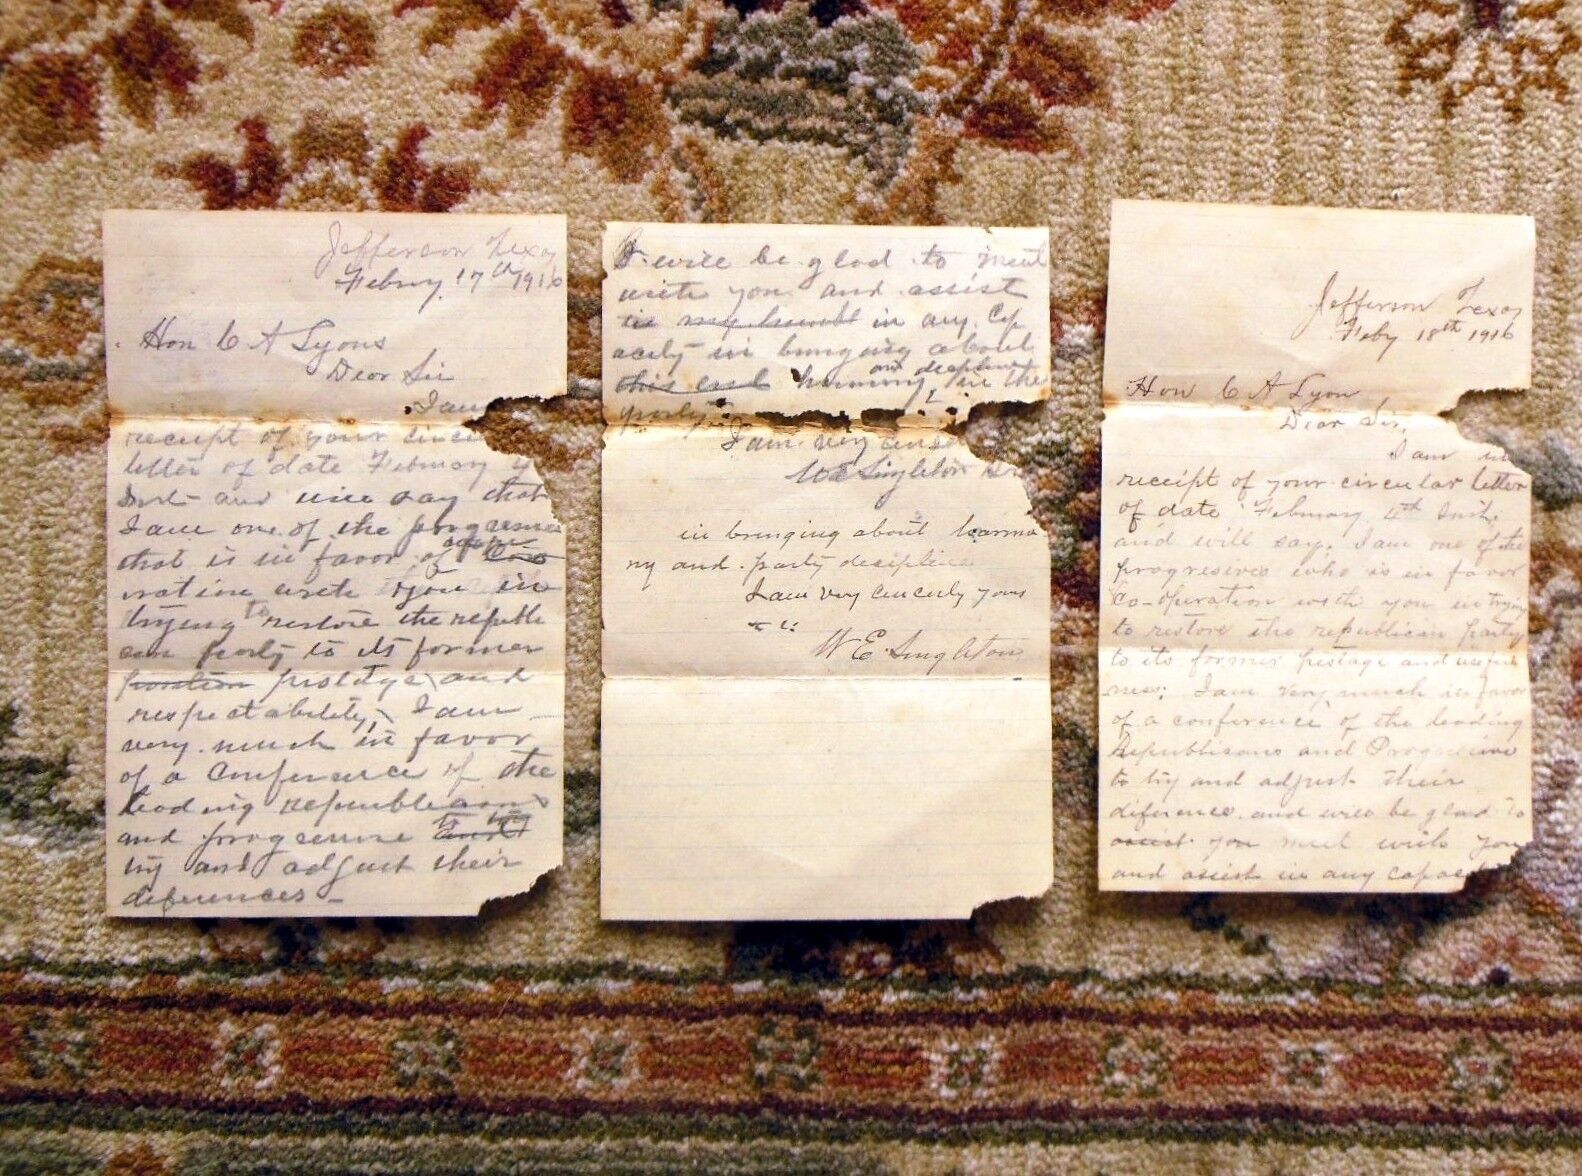 Jefferson Texas
Febury 17th 1916
Hon C A Lyons
Dear Sir
I am
receipt of your circu
letter of date February 4
Inst and will say that
I am one of the progressive
that is in favor of coope
ration with you in
trying to restore the republi
can party to its former
position prestige and
respectability, I am
very much in favor
of a Conference of the
leading republicans
and progressive to
try and adjust their
diferences -
I will be glad to meet
with you and assist
in my humble in any Cap
acity in bringing about
this end harmony and decipline in the
party
I am very cince
W E Singleton
in bringing about harmo
ny and party decipline
I am very cincerly yours
W E Singleton
Jefferson Texas
Feby 18th 1916
Hon C A Lyon
Dear Sir,
I am in
receipt of your circular letter
of date February 4th Inst,
and will say, I am one of the
progressives who is in favor
Co-operation with you in trying
to restore the republican party
to its former prestage and useful
ness; I am very much in favor
of a conference of the leading
Republicans and Progressive
to try and adjust their
diference and will be glad to
assist you meet with you
and assist in any capacit